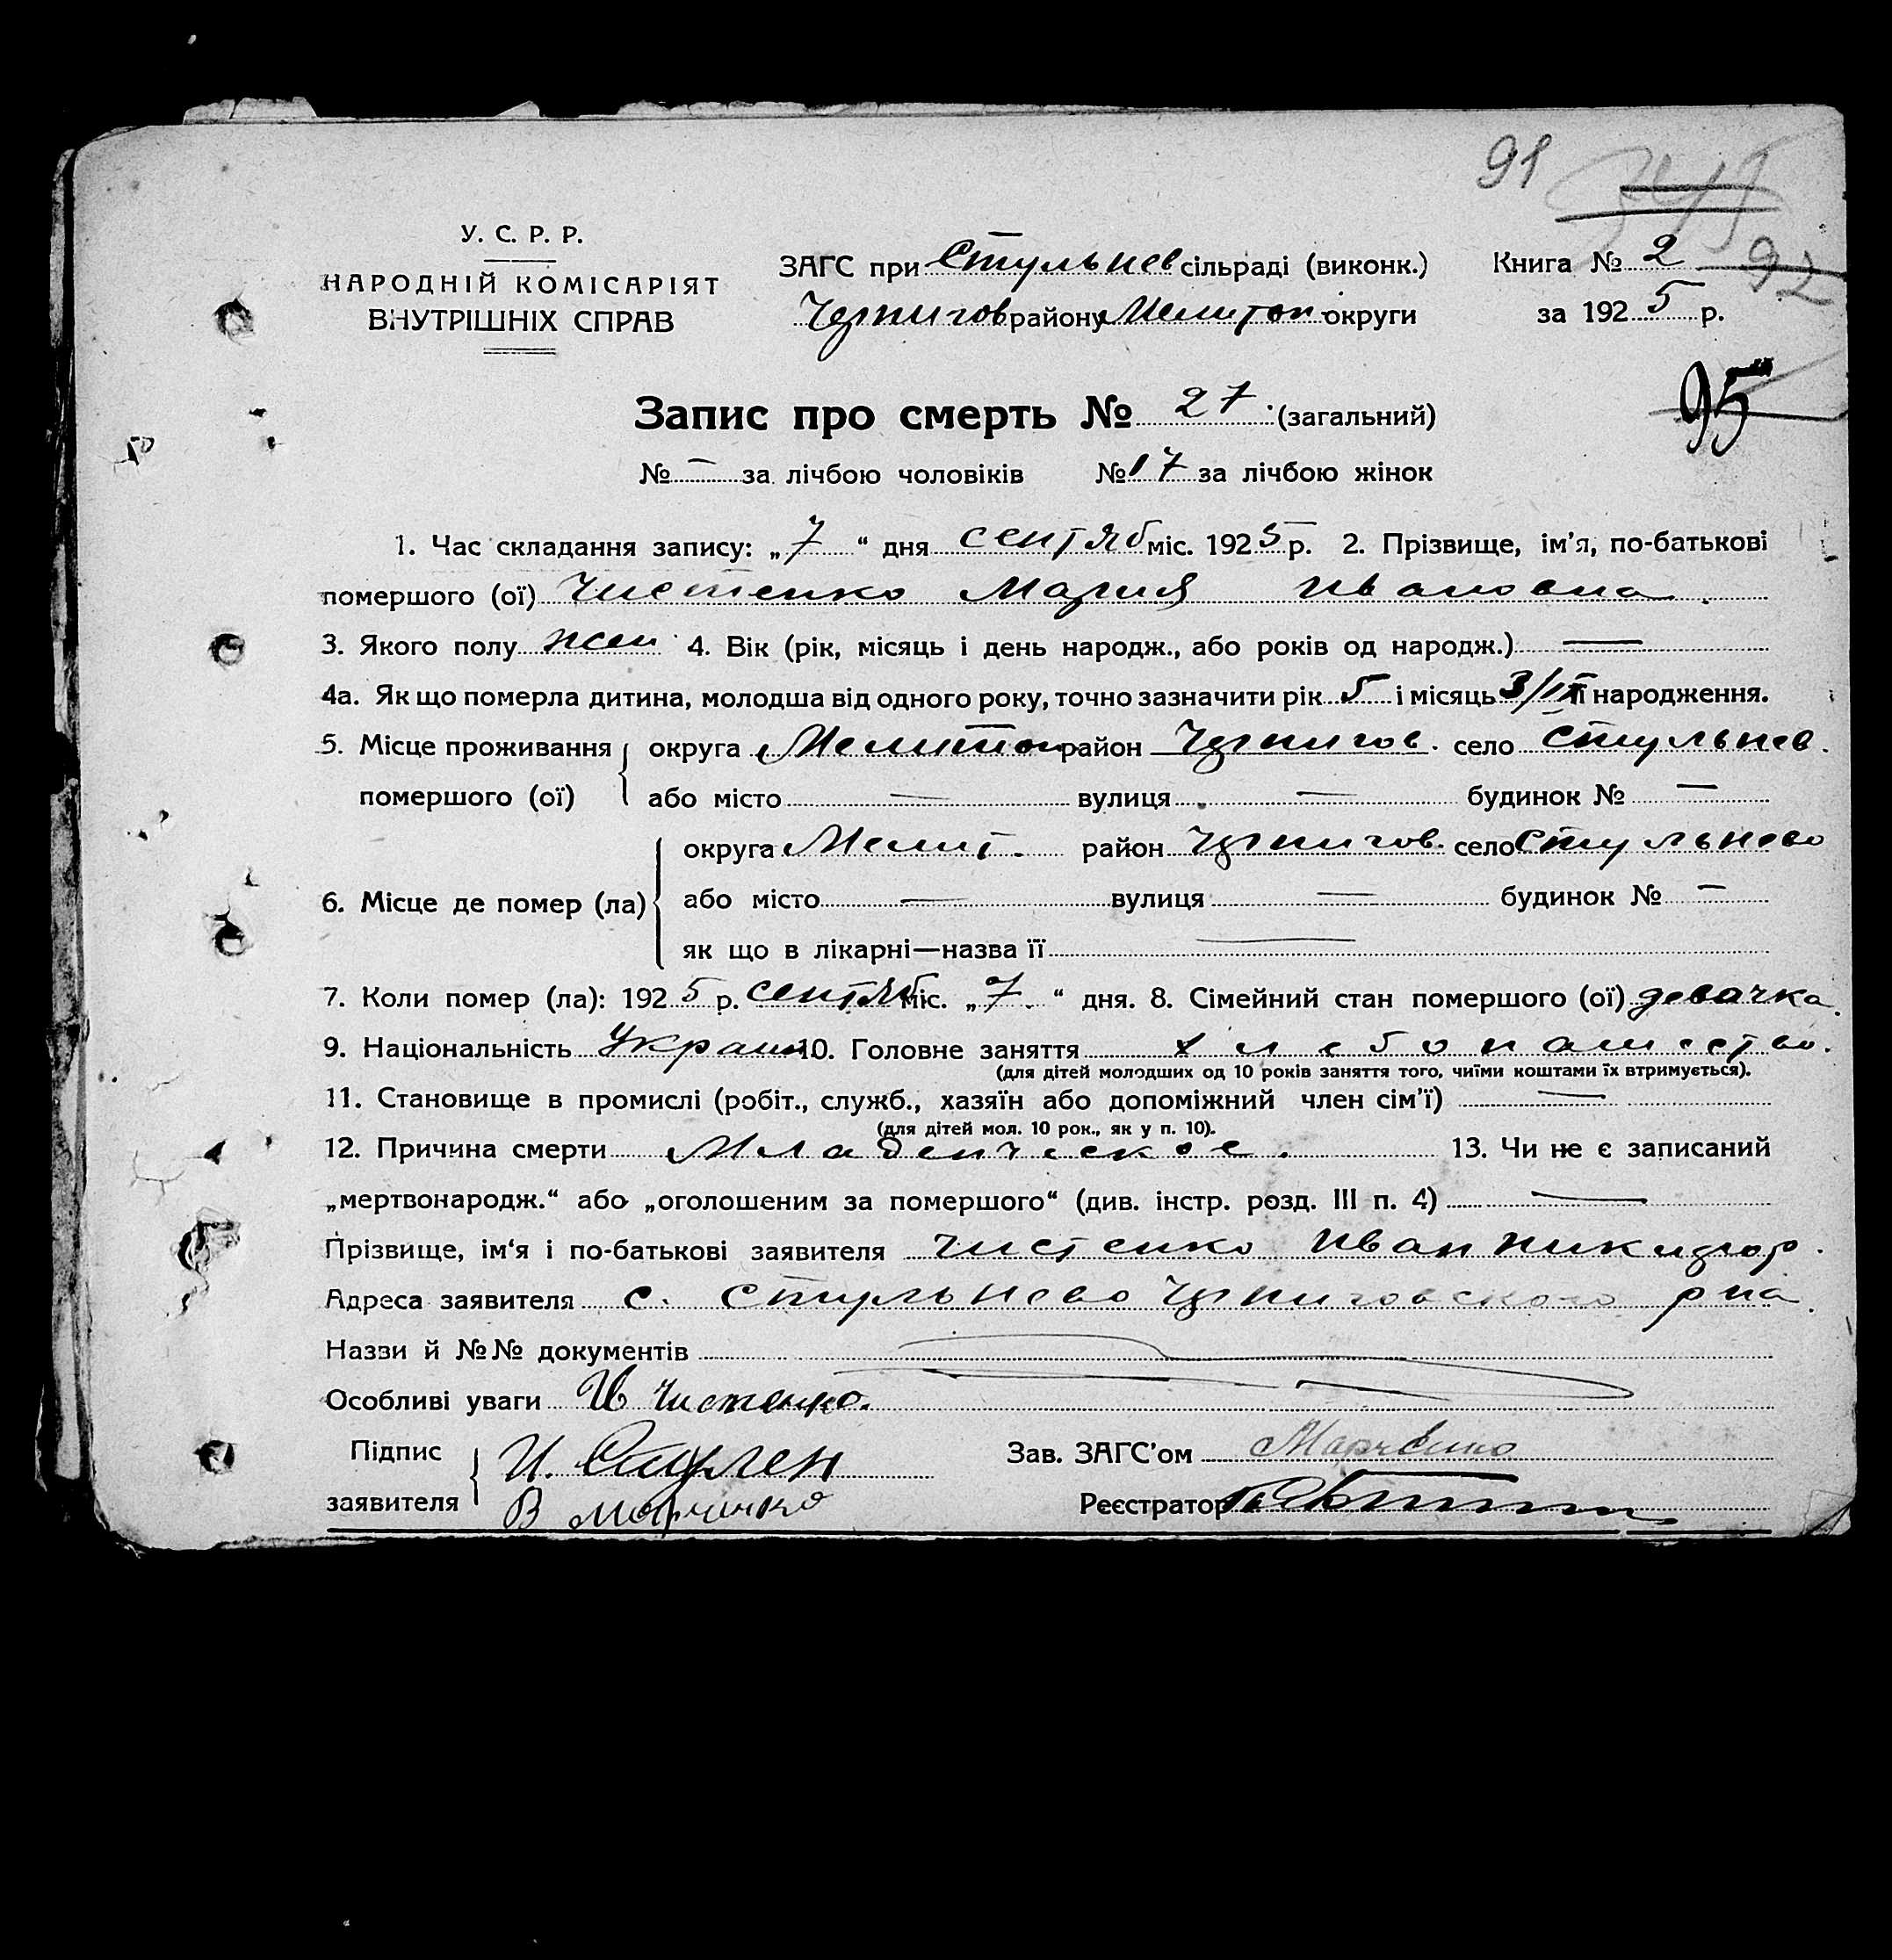 91
92
У. С. Р. Р.
НАРОДНІЙ КОМІСАРІЯТ
ВНУТРІШНІХ СПРАВ
ЗАГС при Стульнев сільраді (виконк.)
Чернигов району Мелитоп округи
Книга № 2
за 1925 р.
95
Запис про смерть № 27 (загальний)
№ — за лічбою чоловіків № 17 за лічбою жінок
1. Час складання запису: „7“ дня сентяб міс. 1925 р. 2. Прізвище, ім’я, по-батькові
помершого (ої) Чистенко Мария Ивановна.
3. Якого полу жен 4. Вік (рік, місяць і день народж., або років од народж.) —
4а. Як що померла дитина, молодша від одного року, точно зазначити рік 5 і місяць 3/IX її народження.
5. Місце проживання помершого (ої) округа Мелитоп район Чернигов. село Стульнев.
або місто — вулиця — будинок № —
6. Місце де помер (ла) округа Мелит. район Чернигов. село Стульнево
або місто — вулиця — будинок № —
як що в лікарні—назва її —
7. Коли помер (ла): 1925 р. сентяб міс. „7“ дня. 8. Сімейний стан помершого (ої) девачка.
9. Національність Украин. 10. Головне заняття хлебопашество.
(для дітей молодших од 10 років заняття того, чиїми коштами їх втримується).
11. Становище в промислі (робіт., служб., хазяїн або допоміжний член сім’ї) —
(для дітей мол. 10 рок., як у п. 10).
12. Причина смерти Младенческое. 13. Чи не є записаний
„мертвонародж.“ або „оголошеним за помершого“ (див. інстр. розд. III п. 4) —
Прізвище, ім’я і по-батькові заявителя Чистенко Иван Никифор.
Адреса заявителя с. Стульнево Черниговского р на.
Назви й №№ документів
Особливі уваги Ив Чистенко.
Підпис заявителя И.
В Марченко
Зав. ЗАГС’ом
Реєстратор